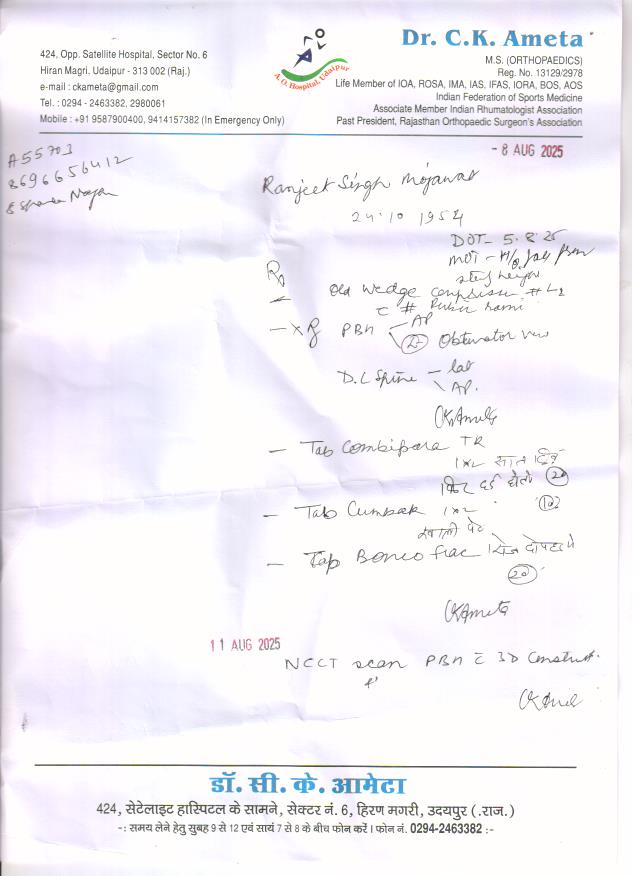 Dr. C.K. Ameta
M.S. (ORTHOPAEDICS)
Reg. No. 13129/2978
Life Member of IOA, ROSA, IMA, IAS, IFAS, IORA, BOS, AOS
Indian Federation of Sports Medicine
Associate Member Indian Rhumatologist Association
Past President, Rajasthan Orthopaedic Surgeon's Association
424, Opp. Satellite Hospital, Sector No. 6
Hiran Magri, Udaipur - 313 002 (Raj.)
e-mail : ckameta@gmail.com
Tel. : 0294 - 2463382, 2980061
Mobile : +91 9587900400, 9414157382 (In Emergency Only)
A. O. Hospital, Udaipur
- 8 AUG 2025
A55703
8696656412
Nagar
Ranjeet Singh
24.10 1954
DOT - 5.8.25
MOT - H/o fall from
Rx
Old wedge # L2
c # rami
- X Ray PBH - AP
Obturator view
D.L Spine - lat
AP.
CKAmeta
- Tab Combipara TR
1x2 सात दिन
फिर दर्द हो तो 20
- Tab 1x2
खाली पेट
- Tab 1 रोज दोपहर में
20
CKAmeta
11 AUG 2025
NCCT scan PBH c 3D Construct.
डॉ. सी. के. आमेटा
424, सेटेलाइट हास्पिटल के सामने, सेक्टर नं. 6, हिरण मगरी, उदयपुर (.राज.)
-: समय लेने हेतु सुबह 9 से 12 एवं सायं 7 से 8 के बीच फोन करें। फोन नं. 0294-2463382 :-